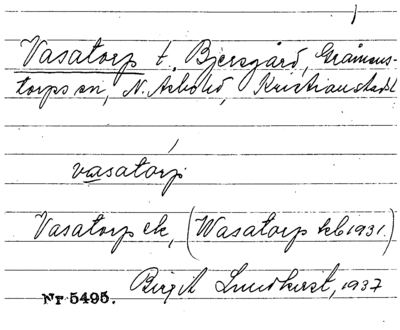 Vasatorp t. Bjersgård, Gråmans-
torps sn, N. Åsbo hd, Kristianstads l
vasatórp
Vasatorp ek, (Wasatorp kb 1931.)
Birgit Lundkvist, 1937
Nr 5495.